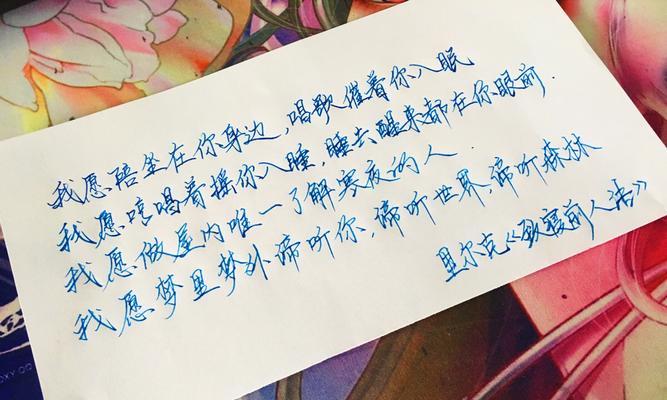 我愿陪坐在你身边，唱歌催着你入眠
我愿哼唱着摇你入睡，睡去醒来都在你眼前．
我愿做屋内唯一了解寒夜的人．
我愿梦里梦外谛听你，谛听世界，谛听森林
里尔克《致寝前人语》
OXY QQ